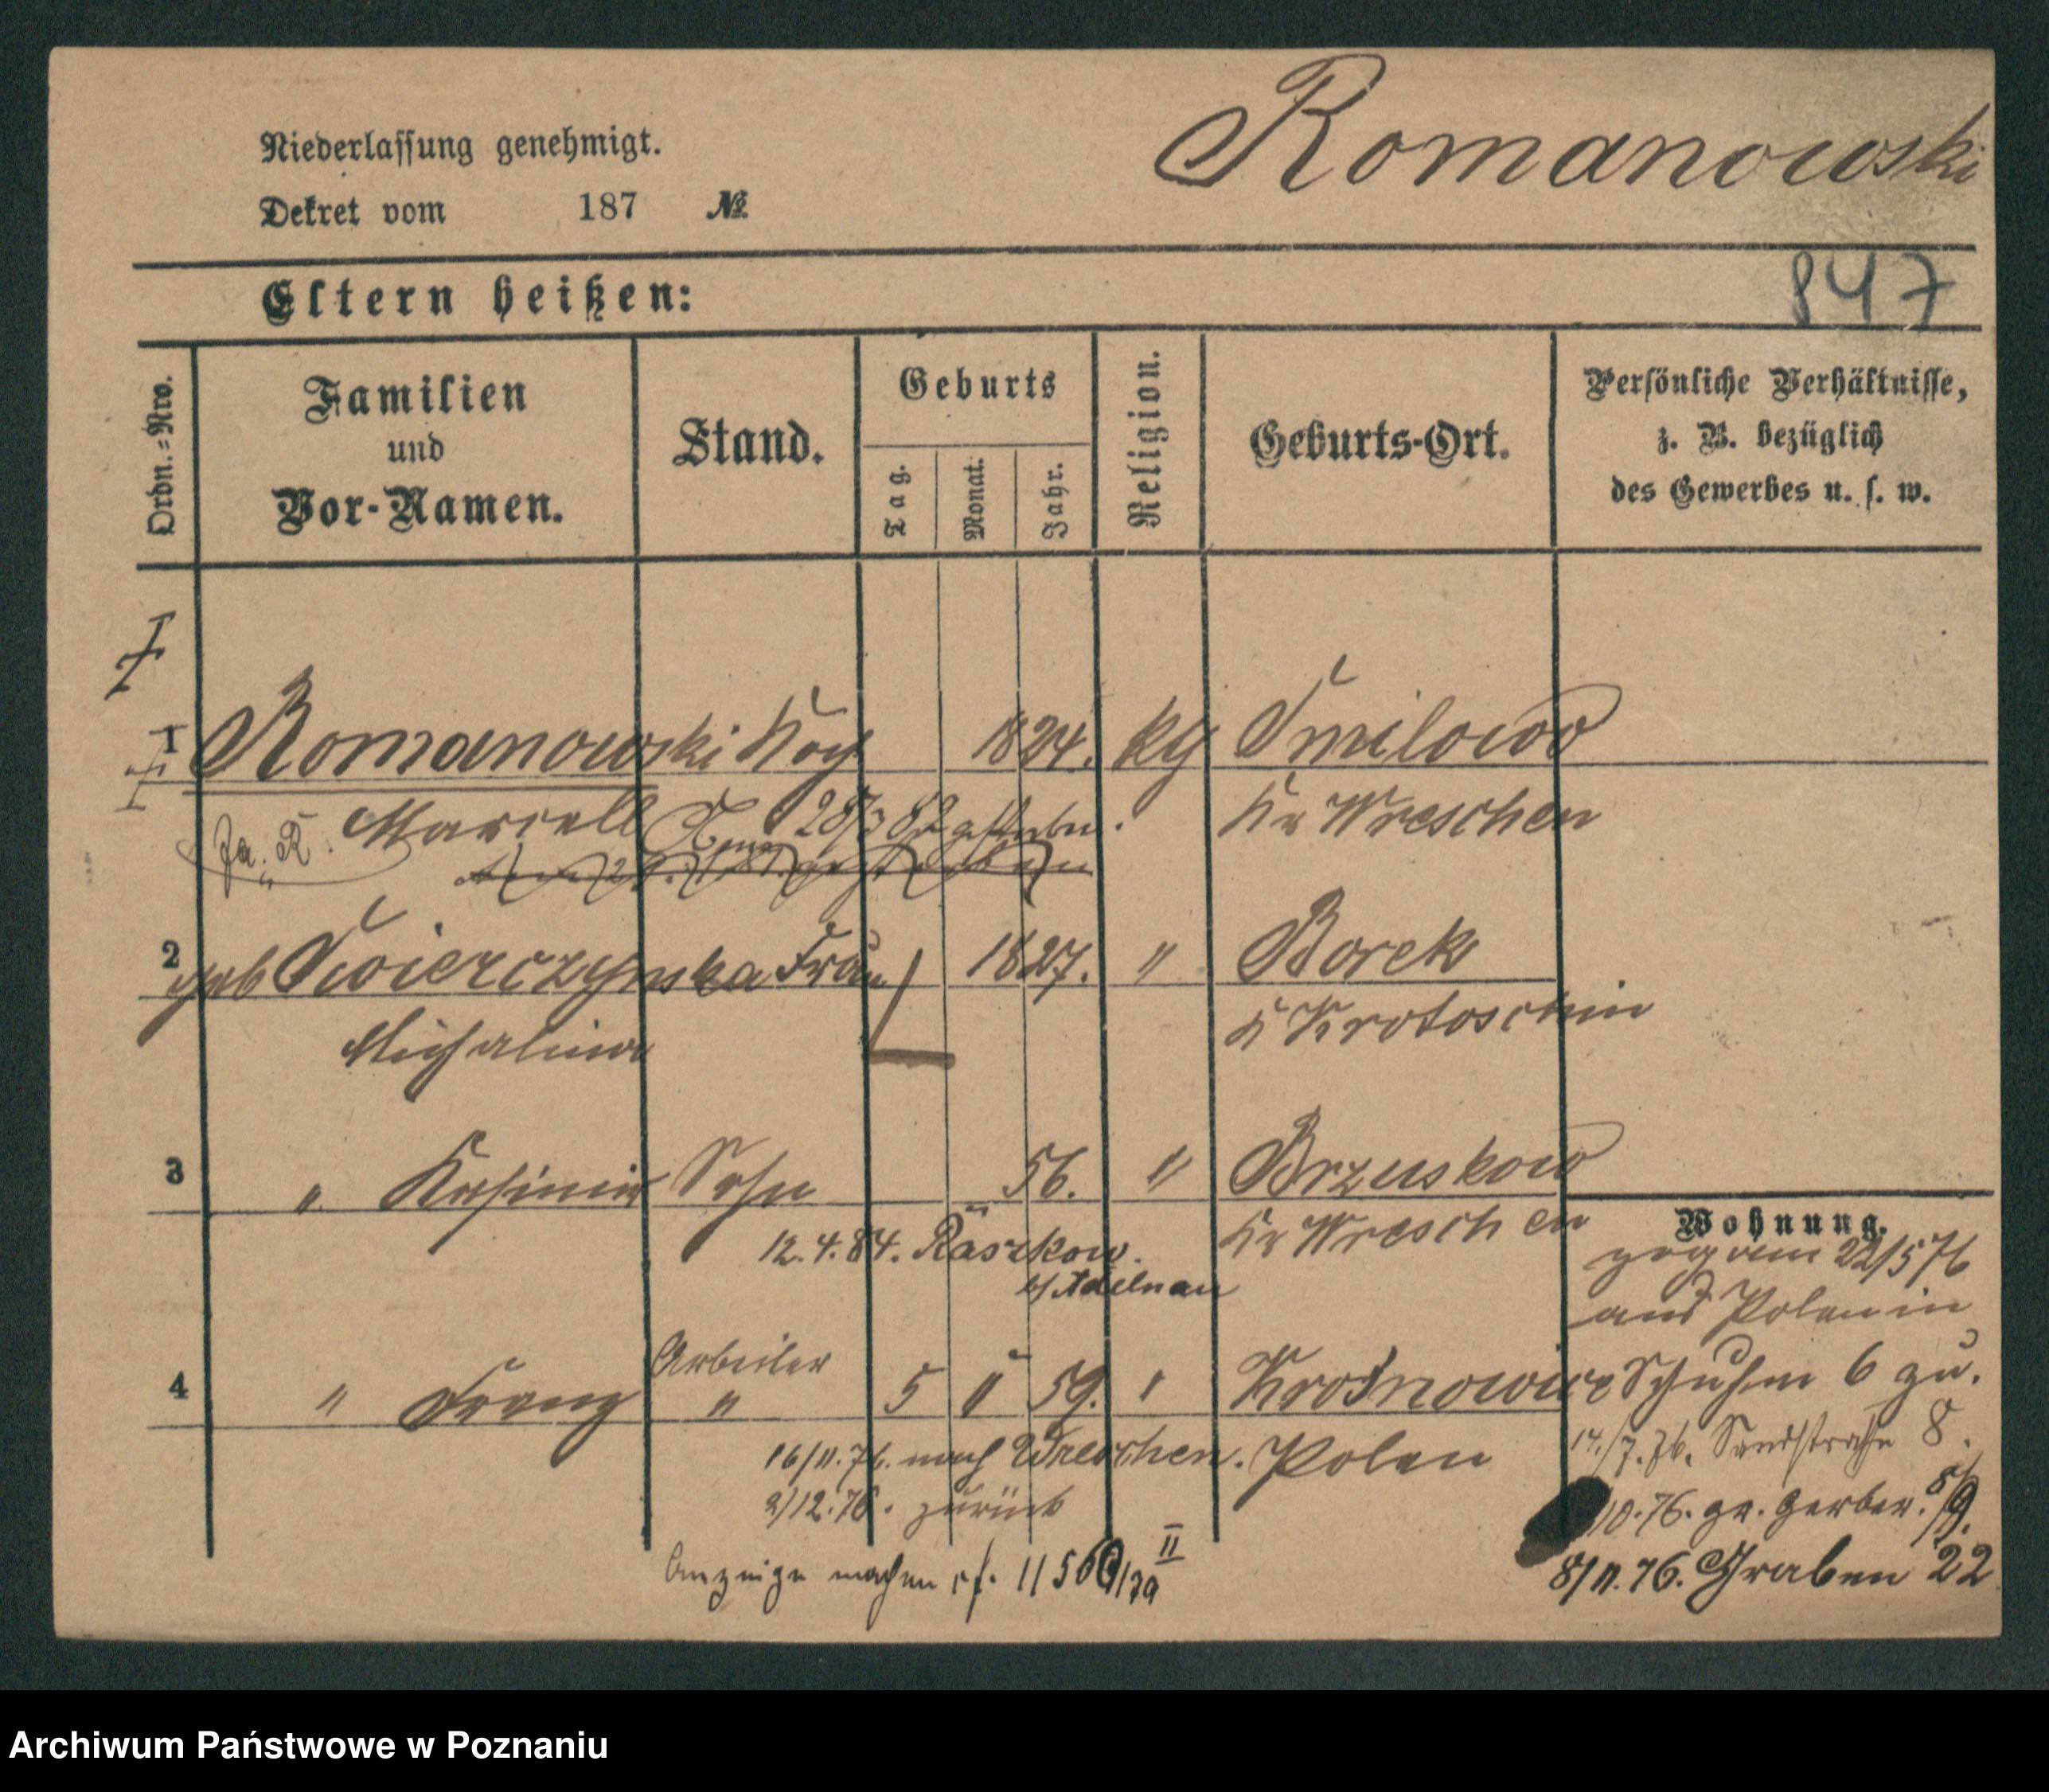 Romanowski
Niederlassung genehmigt.
Dekret vom 187 №
847
Eltern heißen:
Ordn.=Nro.
Familien
und
Vor-Namen.
Stand.
Geburts
Tag.
Monat.
Jahr.
Religion.
Geburts-Ort.
Persönliche Verhältnisse,
z. B. bezüglich
des Gewerbes u. s. w.
1 Romanowski Koch 1824. kth Smilowo
Marcell 28/3 82 gestorben. Kr Wreschen
2 geb Swierczynska Frau 1827. " Borek
Michalina K Krotoschin
3 " Kasimir Sohn 56. " Brzuskow
12.4.84. Raszkow. Kr Wreschen
b/ Adelnau
Wohnung.
zog am 22/5 76
aus Polen in
Schuhm 6 zu.
Arbeiter
4 " Franz " 5 " 59. "
16/11.76. nach Wreschen. Polen
2/12.76. zurück
14./7.76. Sandstraße 8.
10.76. gr. Gerber. 8/9.
8/11.76. Graben 22
Anzeige machen cf.
Archiwum Państwowe w Poznaniu